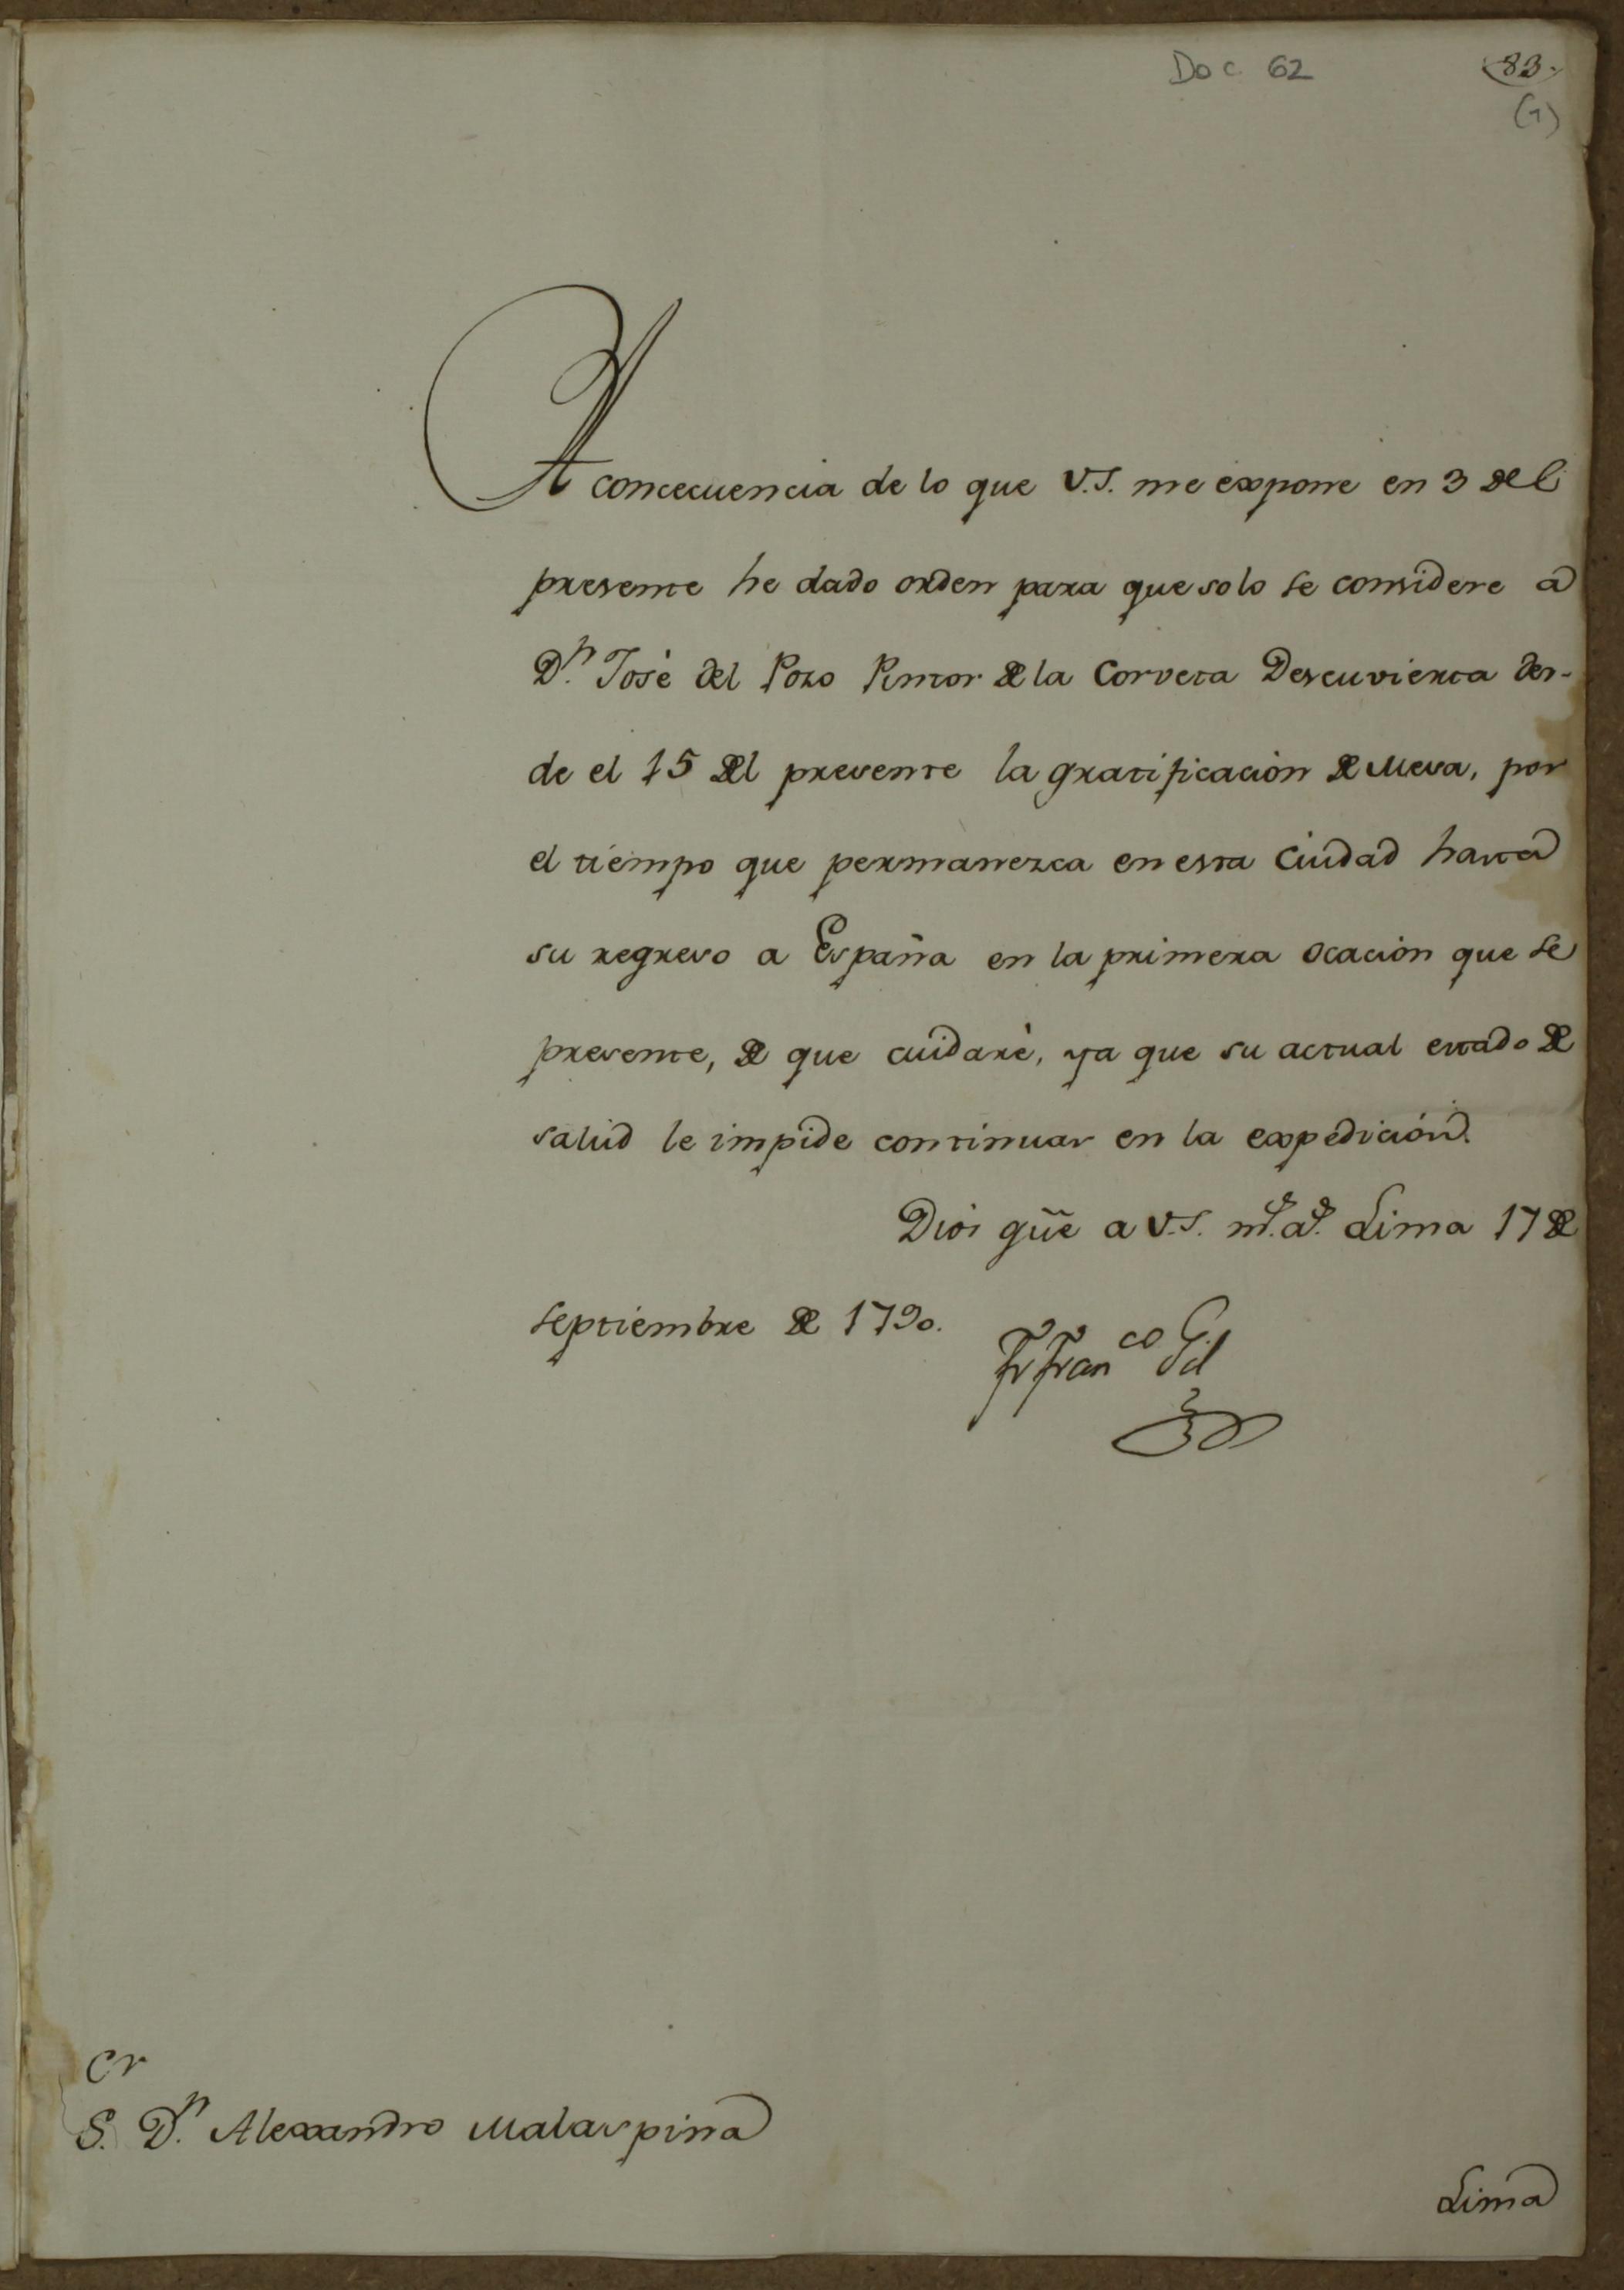 Doc 62
83.
(1)
A concecuencia de lo que V.S. me expone en 3 del
presente he dado orden para que solo se considere a
D.n José del Pozo Pintor de la Corveta Descuvierta des-
de el 15 del presente la gratificación de Mesa, por
el tiempo que permanezca en esta Ciudad hasta
su regreso a España en la primera ocación que se
presente, de que cuidaré, ya que su actual estado de
salud le impide continuar en la expedición.
Dios gũe a V.S. m.s a.s Lima 17 de
septiembre de 1790.
Fr Fran co Gil
S.or D.n Alexandro Malaspina
Lima